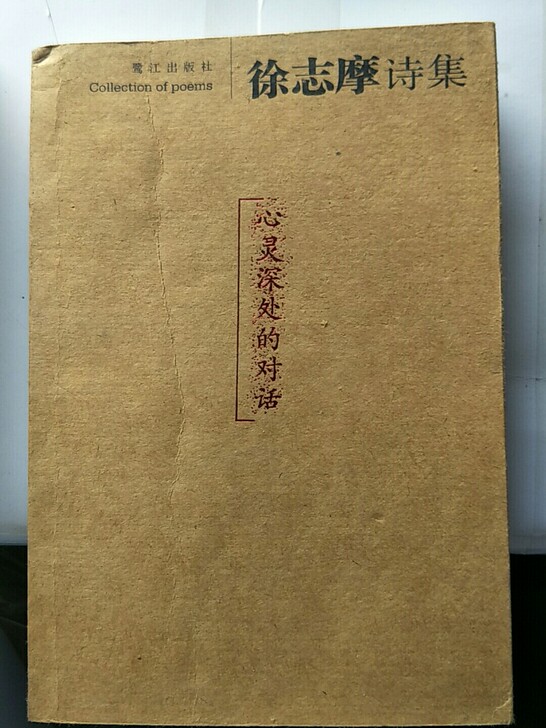 鹭江出版社
Collection of poems
徐志摩诗集
心灵深处的对话